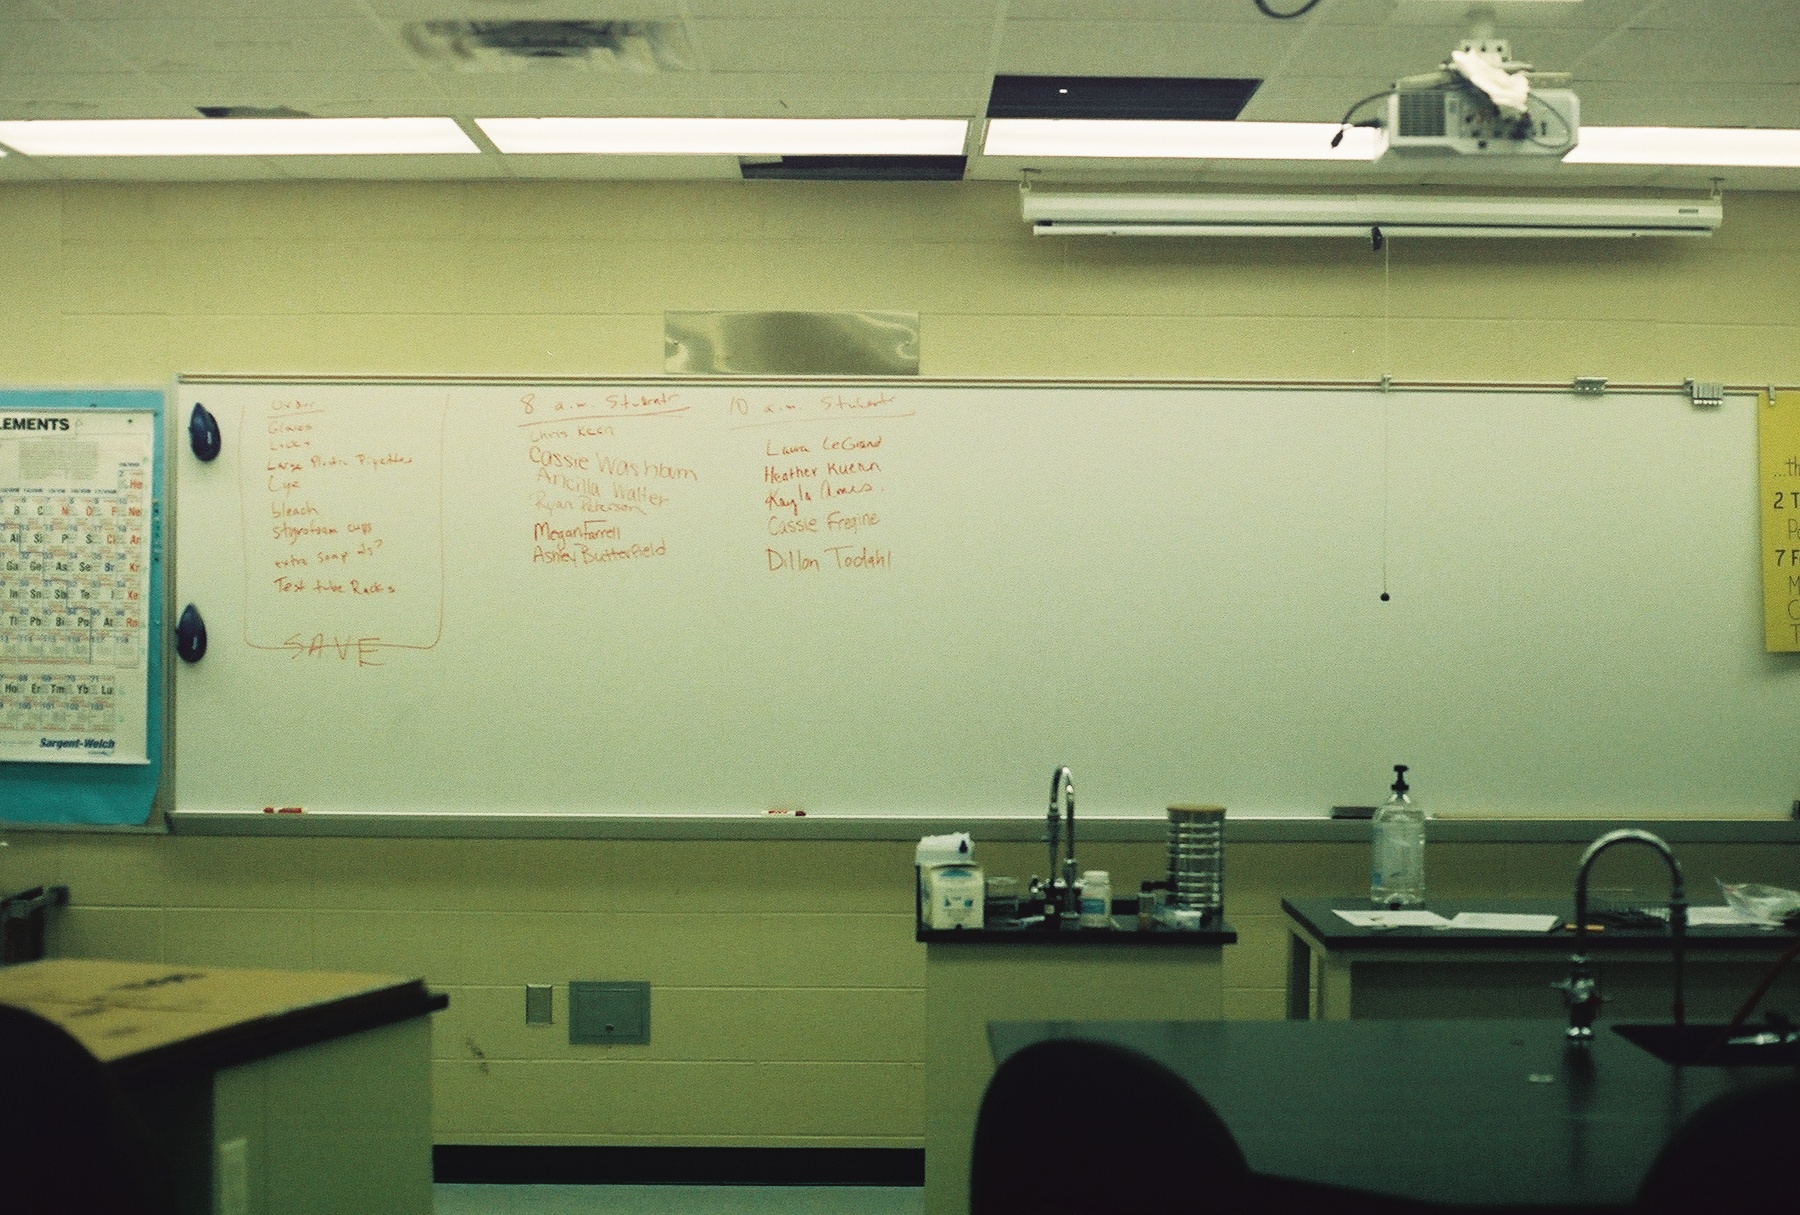 LEMENTS
He
B C N O F Ne
Al Si P S Cl Ar
Ga Ge As Se Br Kr
In Sn Sb Te I Xe
Tl Pb Bi Po At Rn
Ho Er Tm Yb Lu
Sargent-Welch
Order
Gloves
Locks
Large Plastic Pipettes
Lye
bleach
styrofoam cups
extra soap
Test tube Racks
SAVE
8 a.m. Students
Chris Keen
Cassie Washburn
Ancilla Walter
Ryan Peterson
Megan Farrell
Ashley Butterfield
10 a.m. Students
Laura LeGrand
Heather
Kayla
Cassie Fregine
Dillon Todahl
...th
2 T
7 F
M
C
T